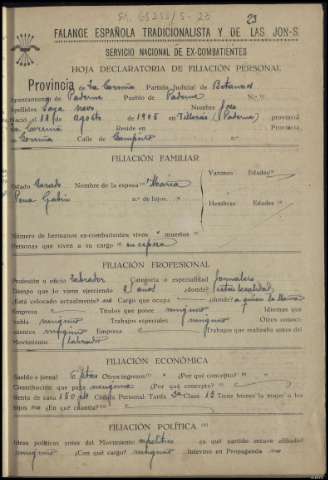 23
FALANGE ESPAÑOLA TRADICIONALISTA Y DE LAS JON-S
SERVICIO NACIONAL DE EX-COMBATIENTES
HOJA DECLARATORIA DE FILIACIÓN PERSONAL
Provincia de La Coruña Partido Judicial de Betanzos
Ayuntamiento de Paderne Pueblo de Paderne N.º
Apellidos Nombre José
Nació el 18 de agosto de 1905 en (Paderne) provincia
La Coruña Reside en Provincia
de Coruña Calle de n.º
FILIACIÓN FAMILIAR
Varones Edades
Estado Casado Nombre de la esposa María
Pena n.º de hijos
Hembras Edades
Número de hermanos ex-combatientes vivos muertos
Personas que viven a su cargo su esposa
FILIACIÓN PROFESIONAL
Profesión u oficio labrador Categoría o especialidad jornalero
Tiempo que lo viene ejerciendo años ¿dónde? esta localidad
Está colocado actualmente no Cargo que ocupa ¿dónde? a quien lo llama
Empresa Títulos que posee ninguno Idiomas que
habla ninguno Trabajos especiales ninguno Otros conoci-
mientos ninguno Empresa ¿Trabajos que realizaba antes del
Movimiento? labrador
FILIACIÓN ECONÓMICA
Sueldo o jornal 6 ptas Otros ingresos ¿Por qué concepto?
Contribución que paga ninguna ¿Por qué concepto?
Renta de casa 150 pts Cédula Personal Tarifa 3ª Clase 13 Tiene bienes la mujer o los
hijos no ¿En qué cuantía?
FILIACIÓN POLÍTICA
Ideas políticas antes del Movimiento apolítico ¿a qué partido estuvo afiliado?
ninguno ¿Con qué cargo? ninguno Intervino en Propaganda no